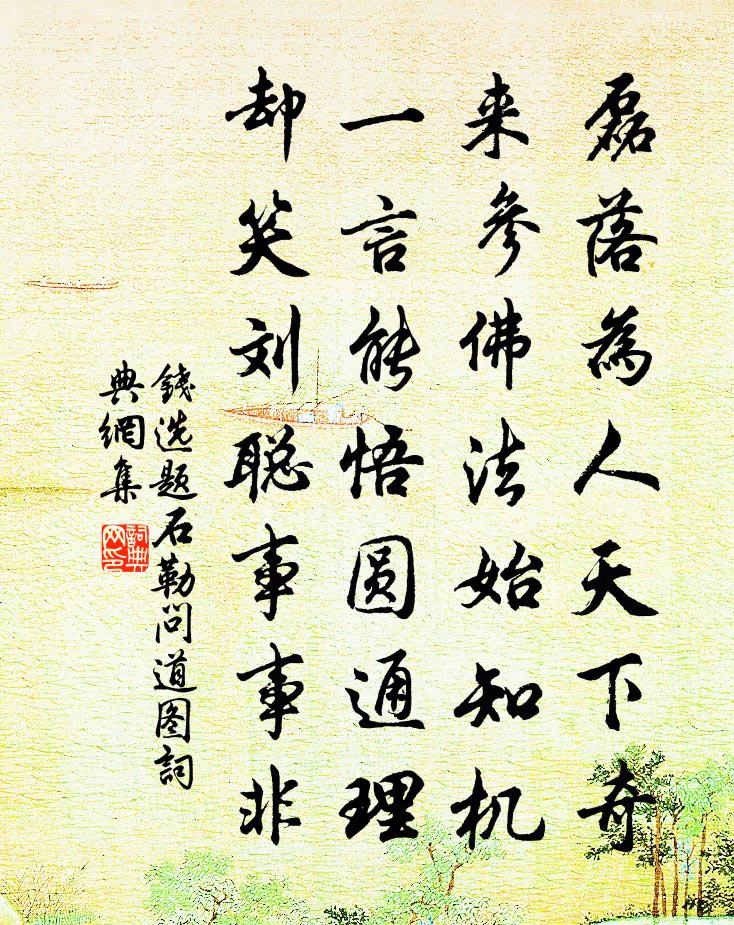 磊落為人天下奇
来參佛法始知机
一言能悟圆通理
却笑刘聪事事非
錢选题石勒问道图詞
典網集
詞典
网印